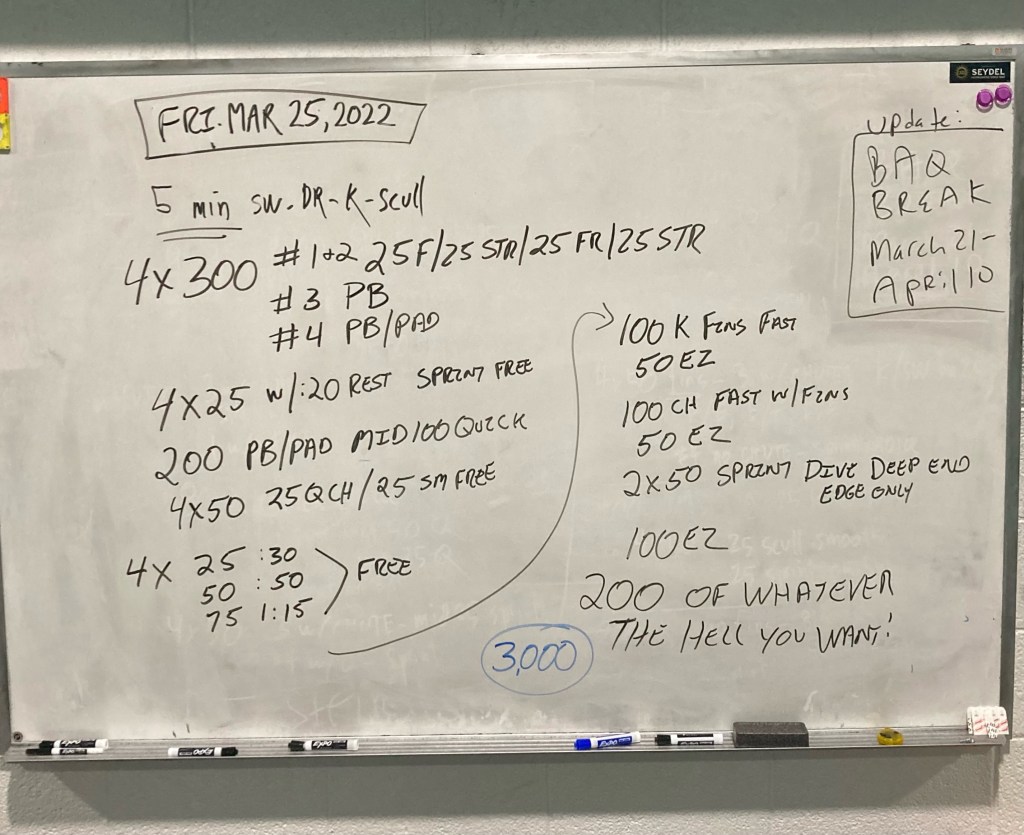 FRI. MAR 25, 2022
5 min SW-DR-K-Scull
4x300 #1+2 25F/25 STR/25 FR/25 STR
#3 PB
#4 PB/PAD
4x25 w/:20 REST SPRINT FREE
200 PB/PAD MID 100 QUICK
4x50 25 Q CH/25 SM FREE
4x 25 :30
50 :50
75 1:15
FREE
100 K FINS FAST
50 EZ
100 CH FAST W/FINS
50 EZ
2x50 SPRINT DIVE DEEP END
EDGE ONLY
100 EZ
200 OF WHATEVER
THE HELL YOU WANT!
3,000
Update:
BAQ
BREAK
March 21-
April 10
SEYDEL
EXPO
EXPO
EXPO